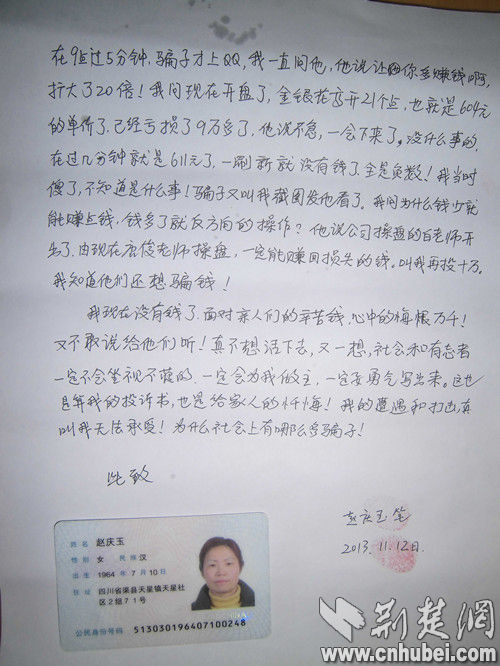 在9点过5分钟,骗子才上QQ,我一直问他,他说让你多赚钱啊,
扩大了20倍!我问现在开盘了,金银花高开21个点,也就是604元
的单价了,已经亏损了9万多了,他说不急,一会下来了。没什么事的,
在过几分钟就是611元了,一刷新就没有钱了,全是负数!我当时
傻了,不知道是什么事!骗子又叫我截图发他看了,我问为什么钱少就
能赚点钱,钱多了就反方向的操作?他说公司操盘的白老师开
出了,由现在唐俊老师操盘,一定能赚回损失的钱。叫我再投十万。
我知道他们还想骗钱!
我现在没有钱了,面对亲人们的辛苦钱,心中的悔恨万千!
又不敢说给他们听!真不想活下去,又一想,社会和有志者
一定不会坐视不管的,一定会为我做主,一定要勇气写出来。这也
是我的投诉书,也是给家人的忏悔!我的遭遇和打击真
叫我无法承受!为什么社会上有那么多骗子!
此致
赵庆玉 笔
2013.11.12日.
姓名 赵庆玉
性别 女 民族 汉
出生 1964 年 7 月 10 日
住址 四川省渠县天星镇天星社
区2组71号
公民身份号码 513030196407100248
荆楚网
www.cnhubei.com